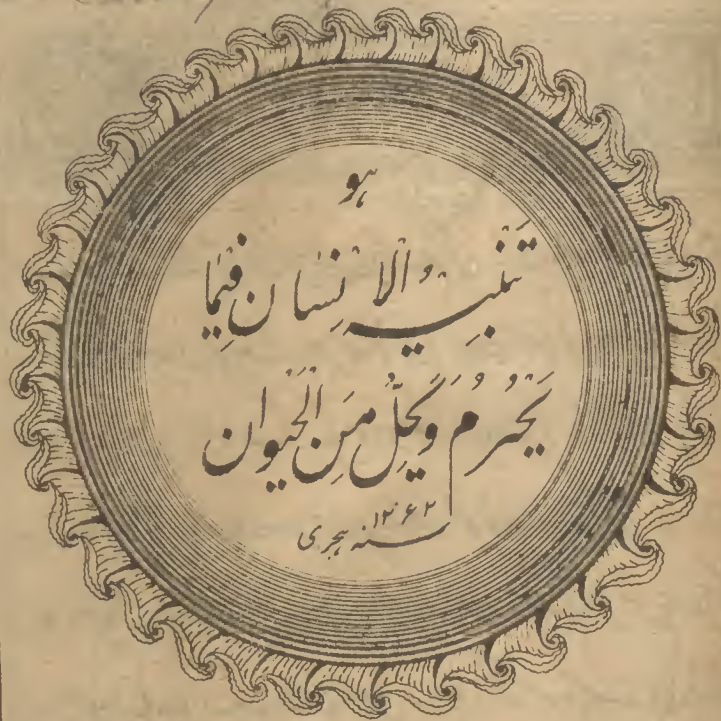 ہو
تَنْبِيْهُ الْاِنْسَانِ فِيْمَا
يَحْرُمُ وَيَحِلُّ مِنَ الْحَيَوَانِ
سنہ ۱۲۶۲ ہجری